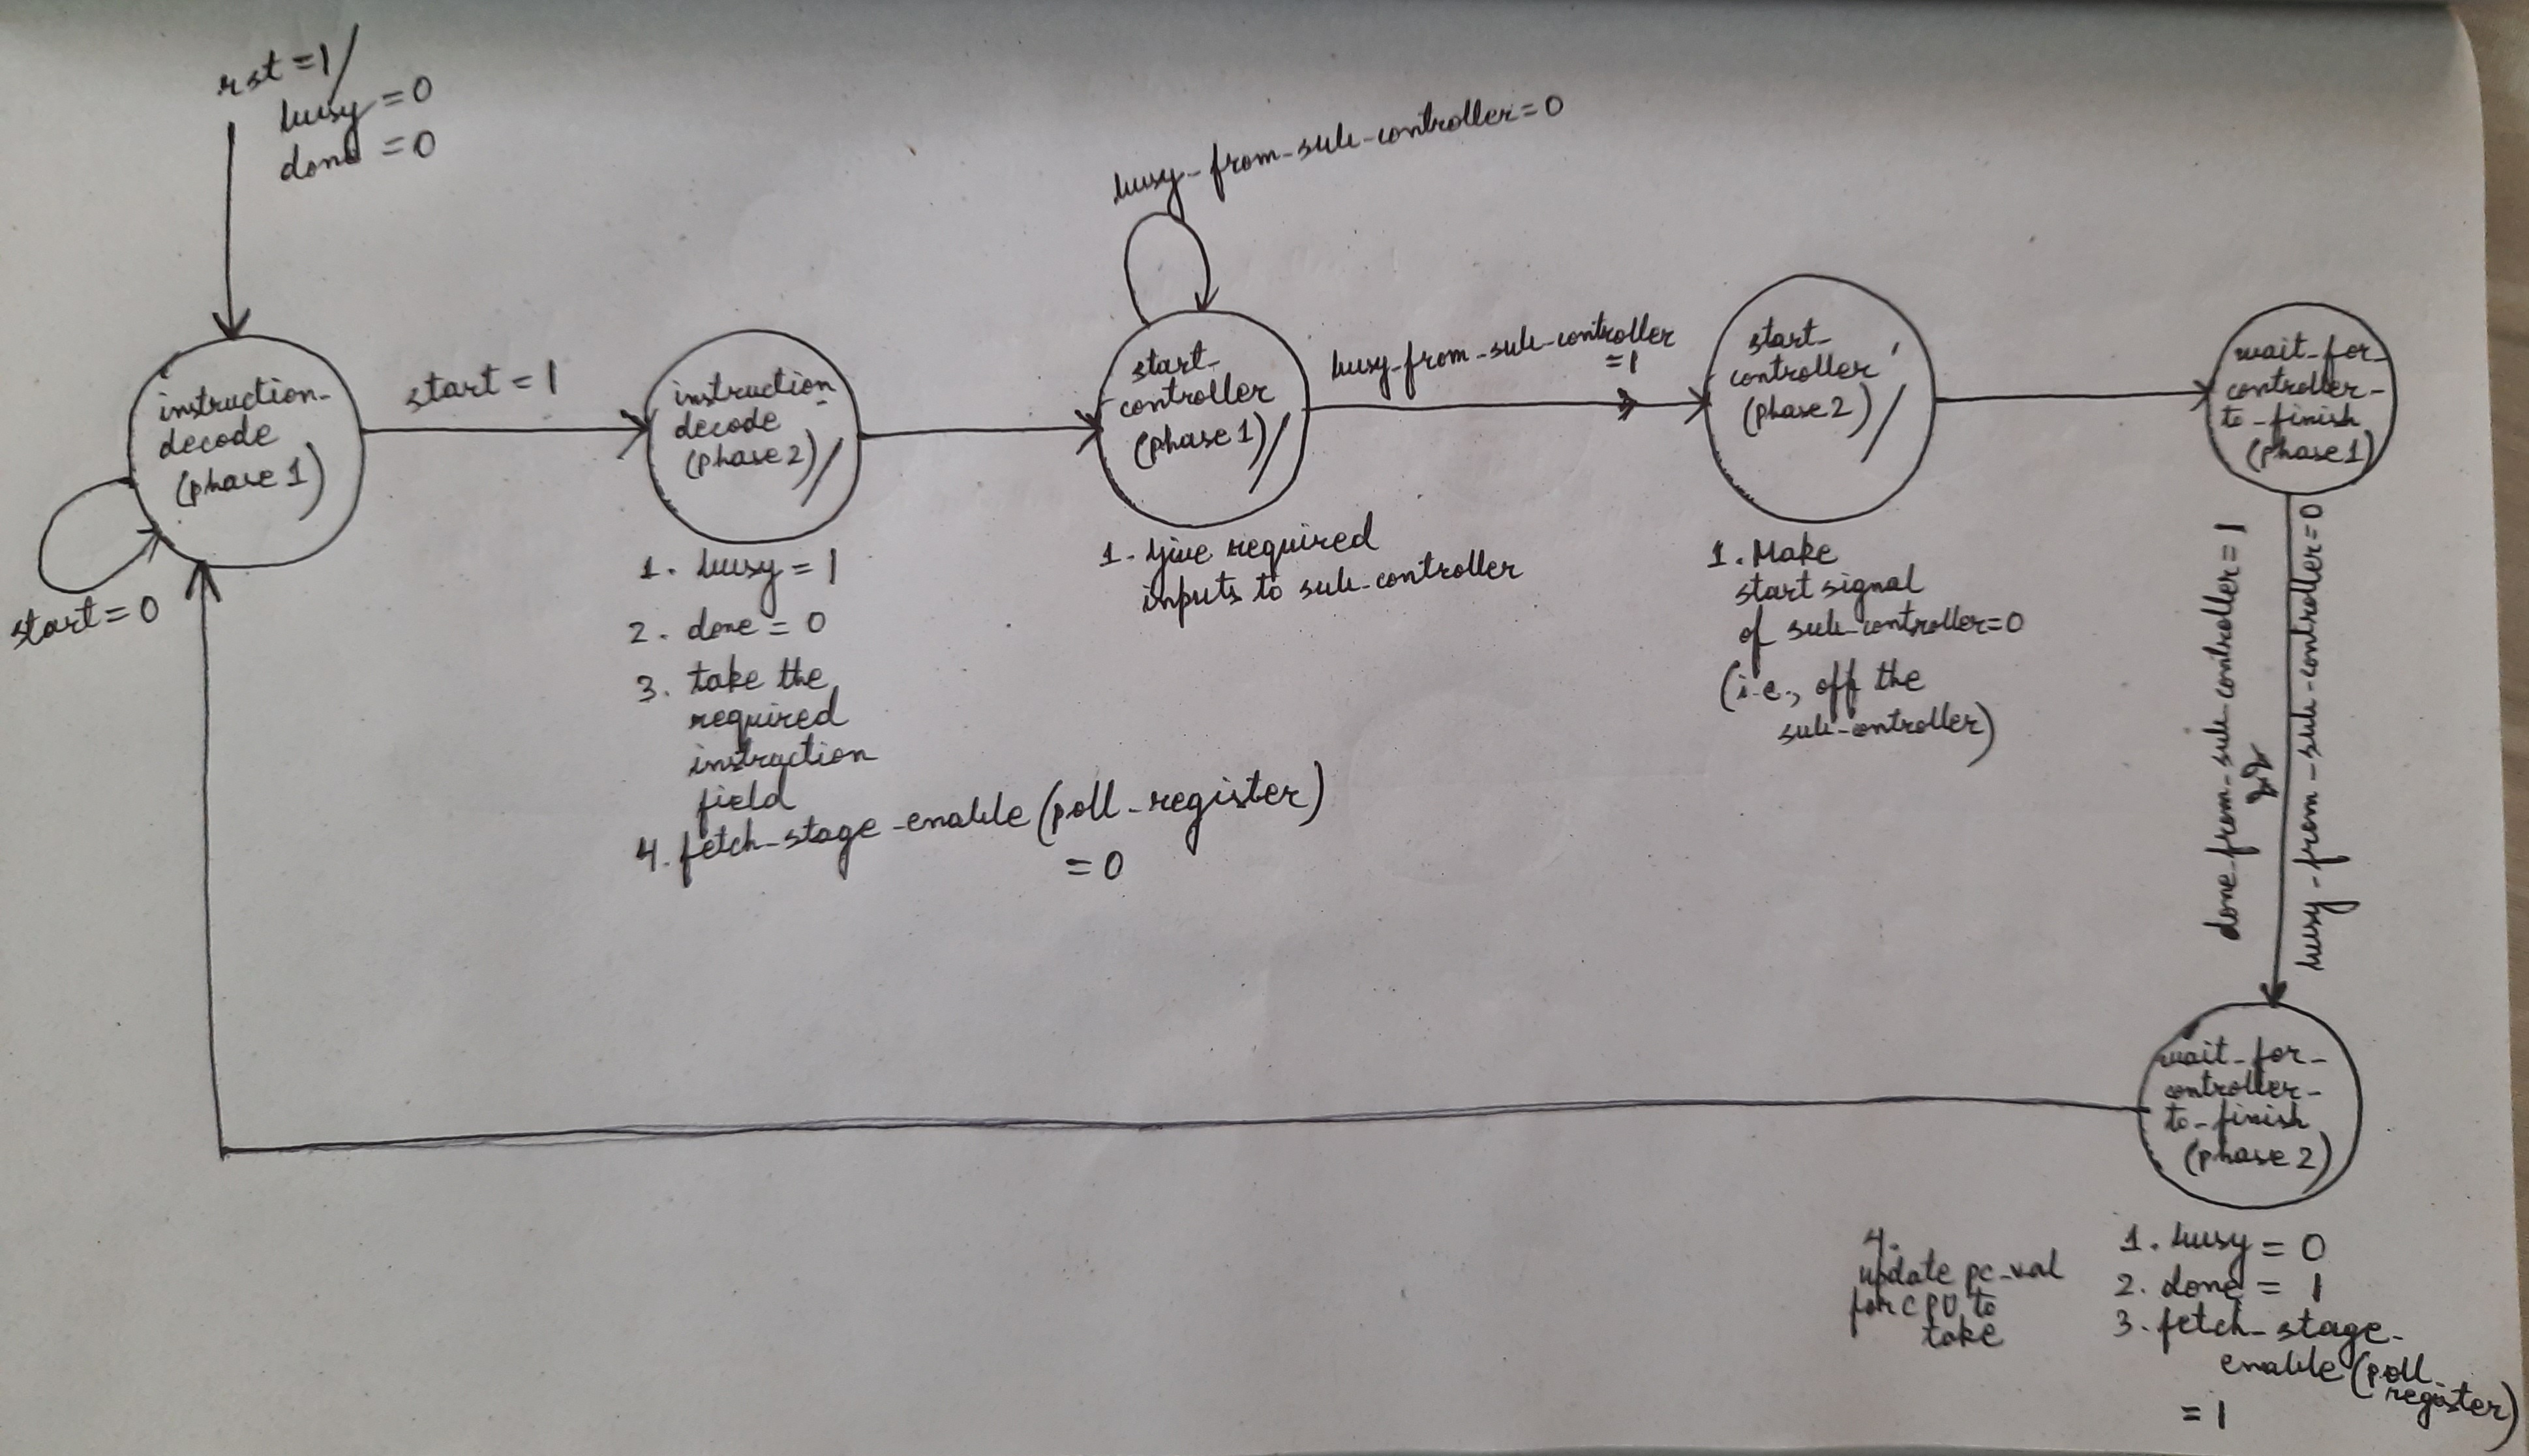 rst = 1/
busy = 0
done = 0
instruction_
decode
(phase 1)
start = 0
start = 1
instruction_
decode
(phase 2)/
1. busy = 1
2. done = 0
3. take the
required
instruction
field
4. fetch_stage_enable (poll_register)
= 0
busy_from_sub_controller = 0
start_
controller
(phase 1)/
1. Give required
inputs to sub-controller
busy_from_sub_controller
= 1
start_
controller
(phase 2)/
1. Make
start signal
of sub-controller = 0
(i.e., off the
sub-controller)
wait_for_
controller_
to_finish
(phase 1)
done_from_sub_controller = 1
&&
busy_from_sub_controller = 0
wait_for_
controller_
to_finish
(phase 2)
1. busy = 0
2. done = 1
3. fetch_stage_
enable (poll_
register)
= 1
4.
update pc_val
for CPU to
take